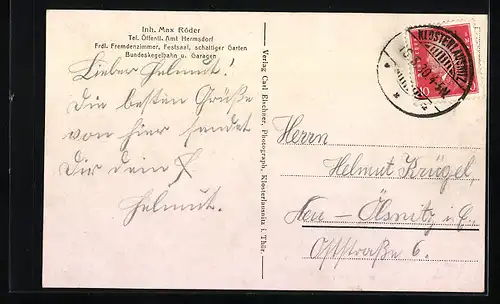 Inh. Max Röder
Tel. Öffentl. Amt Hermsdorf
Frdl. Fremdenzimmer, Festsaal, schattiger Garten
Bundeskegelbahn u. Garagen
Lieber Helmut!
Die besten Grüße
von hier sendet
Dir dein
Helmut.
Verlag Carl Elschner, Photograph, Klosterlausnitz i. Thür.
KLOSTERLAUSNITZ
10
Herrn
Helmut Krügel,
Neu-Ölsnitz i. E.,
Oststraße 6.